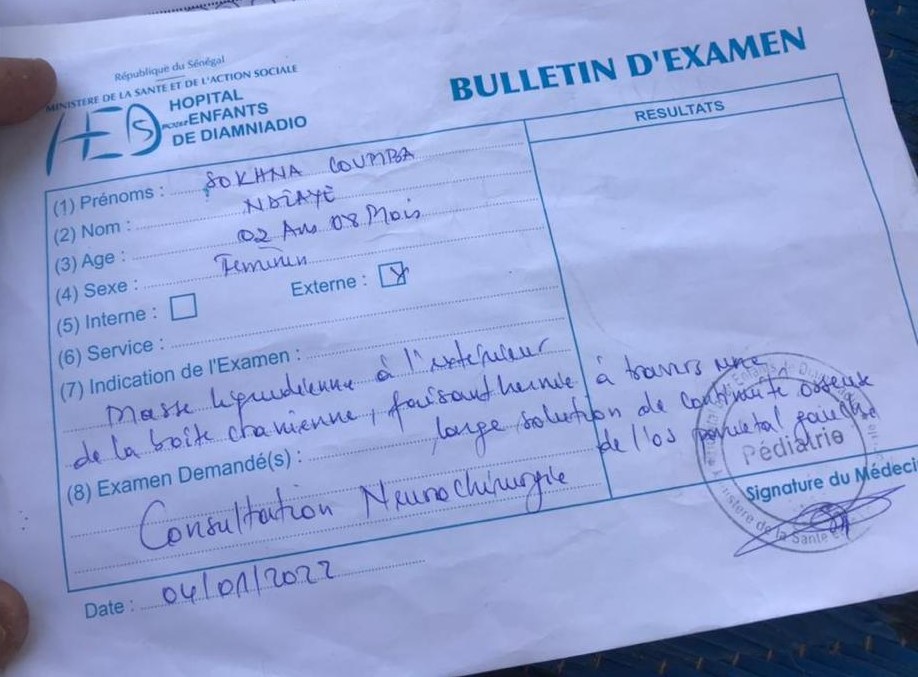 République du Sénégal
MINISTERE DE LA SANTÉ ET DE L'ACTION SOCIALE
HOPITAL
POUR ENFANTS
DE DIAMNIADIO
BULLETIN D'EXAMEN
RESULTATS
(1) Prénoms : SOKHNA COUMBA
(2) Nom : NDIAYE
(3) Age : 02 Ans 08 Mois
(4) Sexe : Feminin
(5) Interne : Externe : X
(6) Service :
(7) Indication de l'Examen :
Masse liquidienne à l'extérieur
de la boîte chanienne, faisant hernie à travers une
large solution de continuité osseuse
de l'os parietal gauche
(8) Examen Demandé(s) :
Consultation Neurochirurgie
Pédiatrie
Signature du Médeci
Date : 04/01/2022